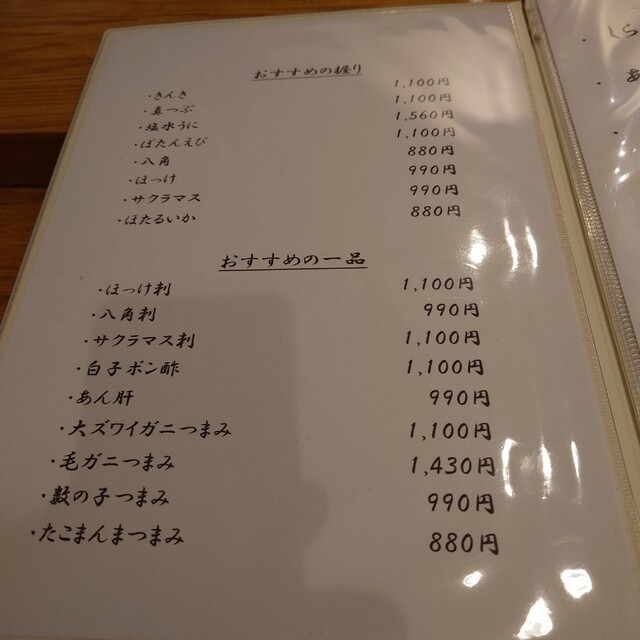 おすすめの握り
・きんき 1,100円
・真つぶ 1,100円
・塩水うに 1,560円
・ぼたんえび 1,100円
・八角 880円
・ほっけ 990円
・サクラマス 990円
・ほたるいか 880円
おすすめの一品
・ほっけ刺 1,100円
・八角刺 990円
・サクラマス刺 1,100円
・白子ポン酢 1,100円
・あん肝 990円
・大ズワイガニつまみ 1,100円
・毛ガニつまみ 1,430円
・数の子つまみ 990円
・たこまんまつまみ 880円
・しら
・あ